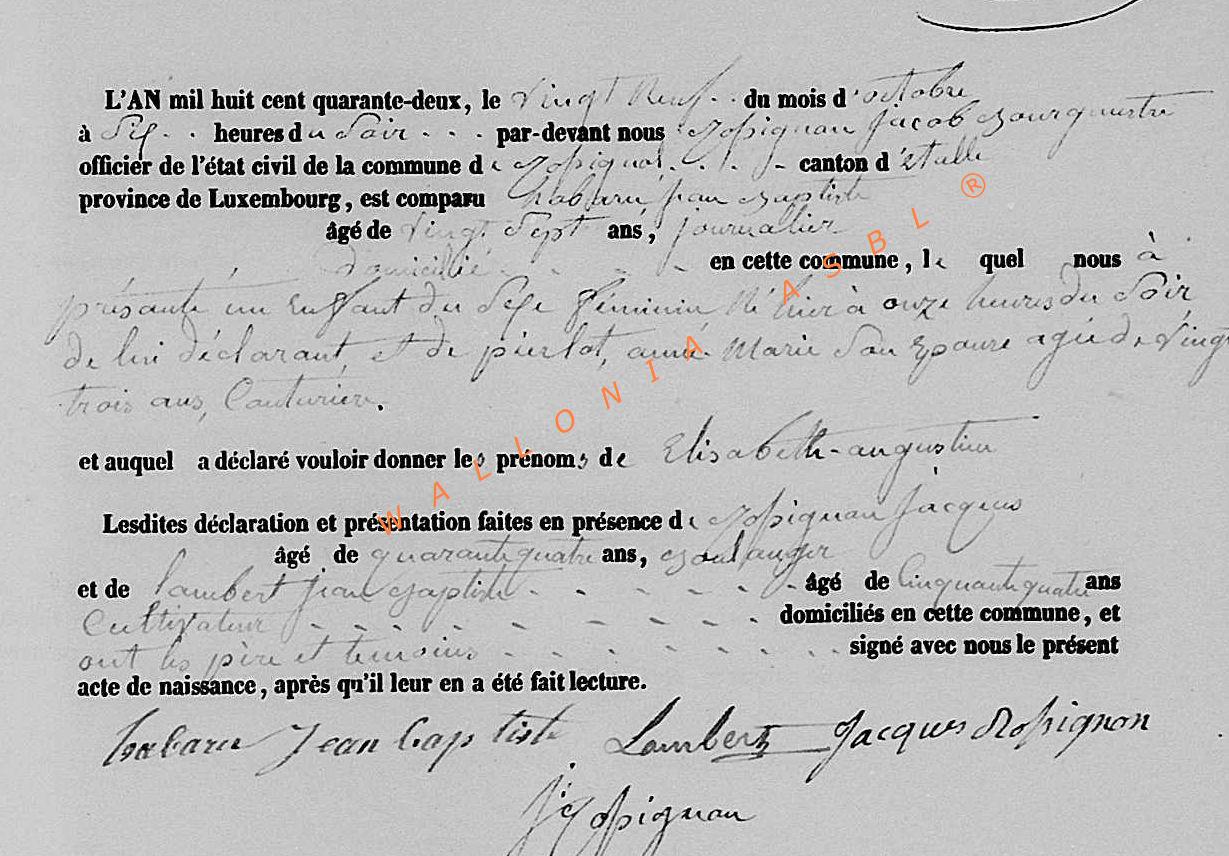 L'AN mil huit cent quarante-deux, le vingt neuf du mois d'octobre
à Six heures du Soir par-devant nous Rossignon Jacob Bourguestre
officier de l'état civil de la commune de Rossignol canton d'Etalle
province de Luxembourg, est comparu habaru jean Baptiste
âgé de vingt Sept ans, journalier
domicilié en cette commune, le quel nous à
présante un Enfant du Sexe féminin Né hier à onze heures du Soir
de lui déclarant, et de pierlot, anne Marie Son Epouse agée de Vingt
trois ans, Couturière.
et auquel a déclaré vouloir donner les prénoms de Elisabeth-augustine
Lesdites déclaration et présentation faites en présence de Rossignon Jacques
âgé de quarante quatre ans, Boulanger
et de lambert jean Baptiste âgé de Cinquante quatre ans
Cultivateur domiciliés en cette commune, et
ont les père et temoins signé avec nous le présent
acte de naissance, après qu'il leur en a été fait lecture.
habaru Jean baptiste Lambert Jacques Rossignon
J Rossignon
WALLONIA ASBL ®